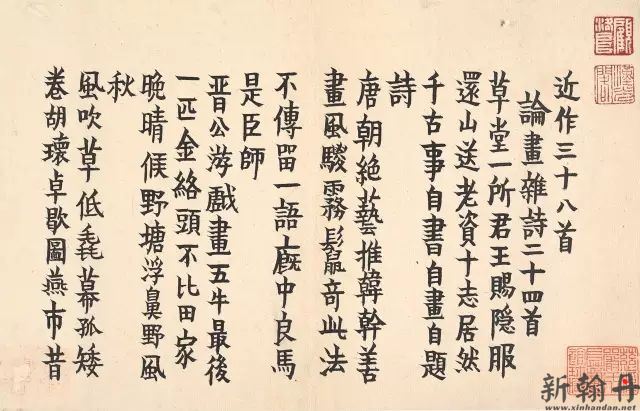 近作三十八首
論畫雜詩二十四首
草堂一所君王賜隐服
還山送老資十志居然
千古事自書自畫自題
詩
唐朝絶藝推韓幹善
畫風駿霧鬣奇此法
不傳留一語廐中良馬
是臣師
晋公游戲畫五牛最後
一匹金絡頭不比田家
晚晴候野塘浮鼻野風
秋
風吹草低毳幕孤矮
卷胡瓌卓歇圖燕市昔
新翰丹
www.xinhandan.net